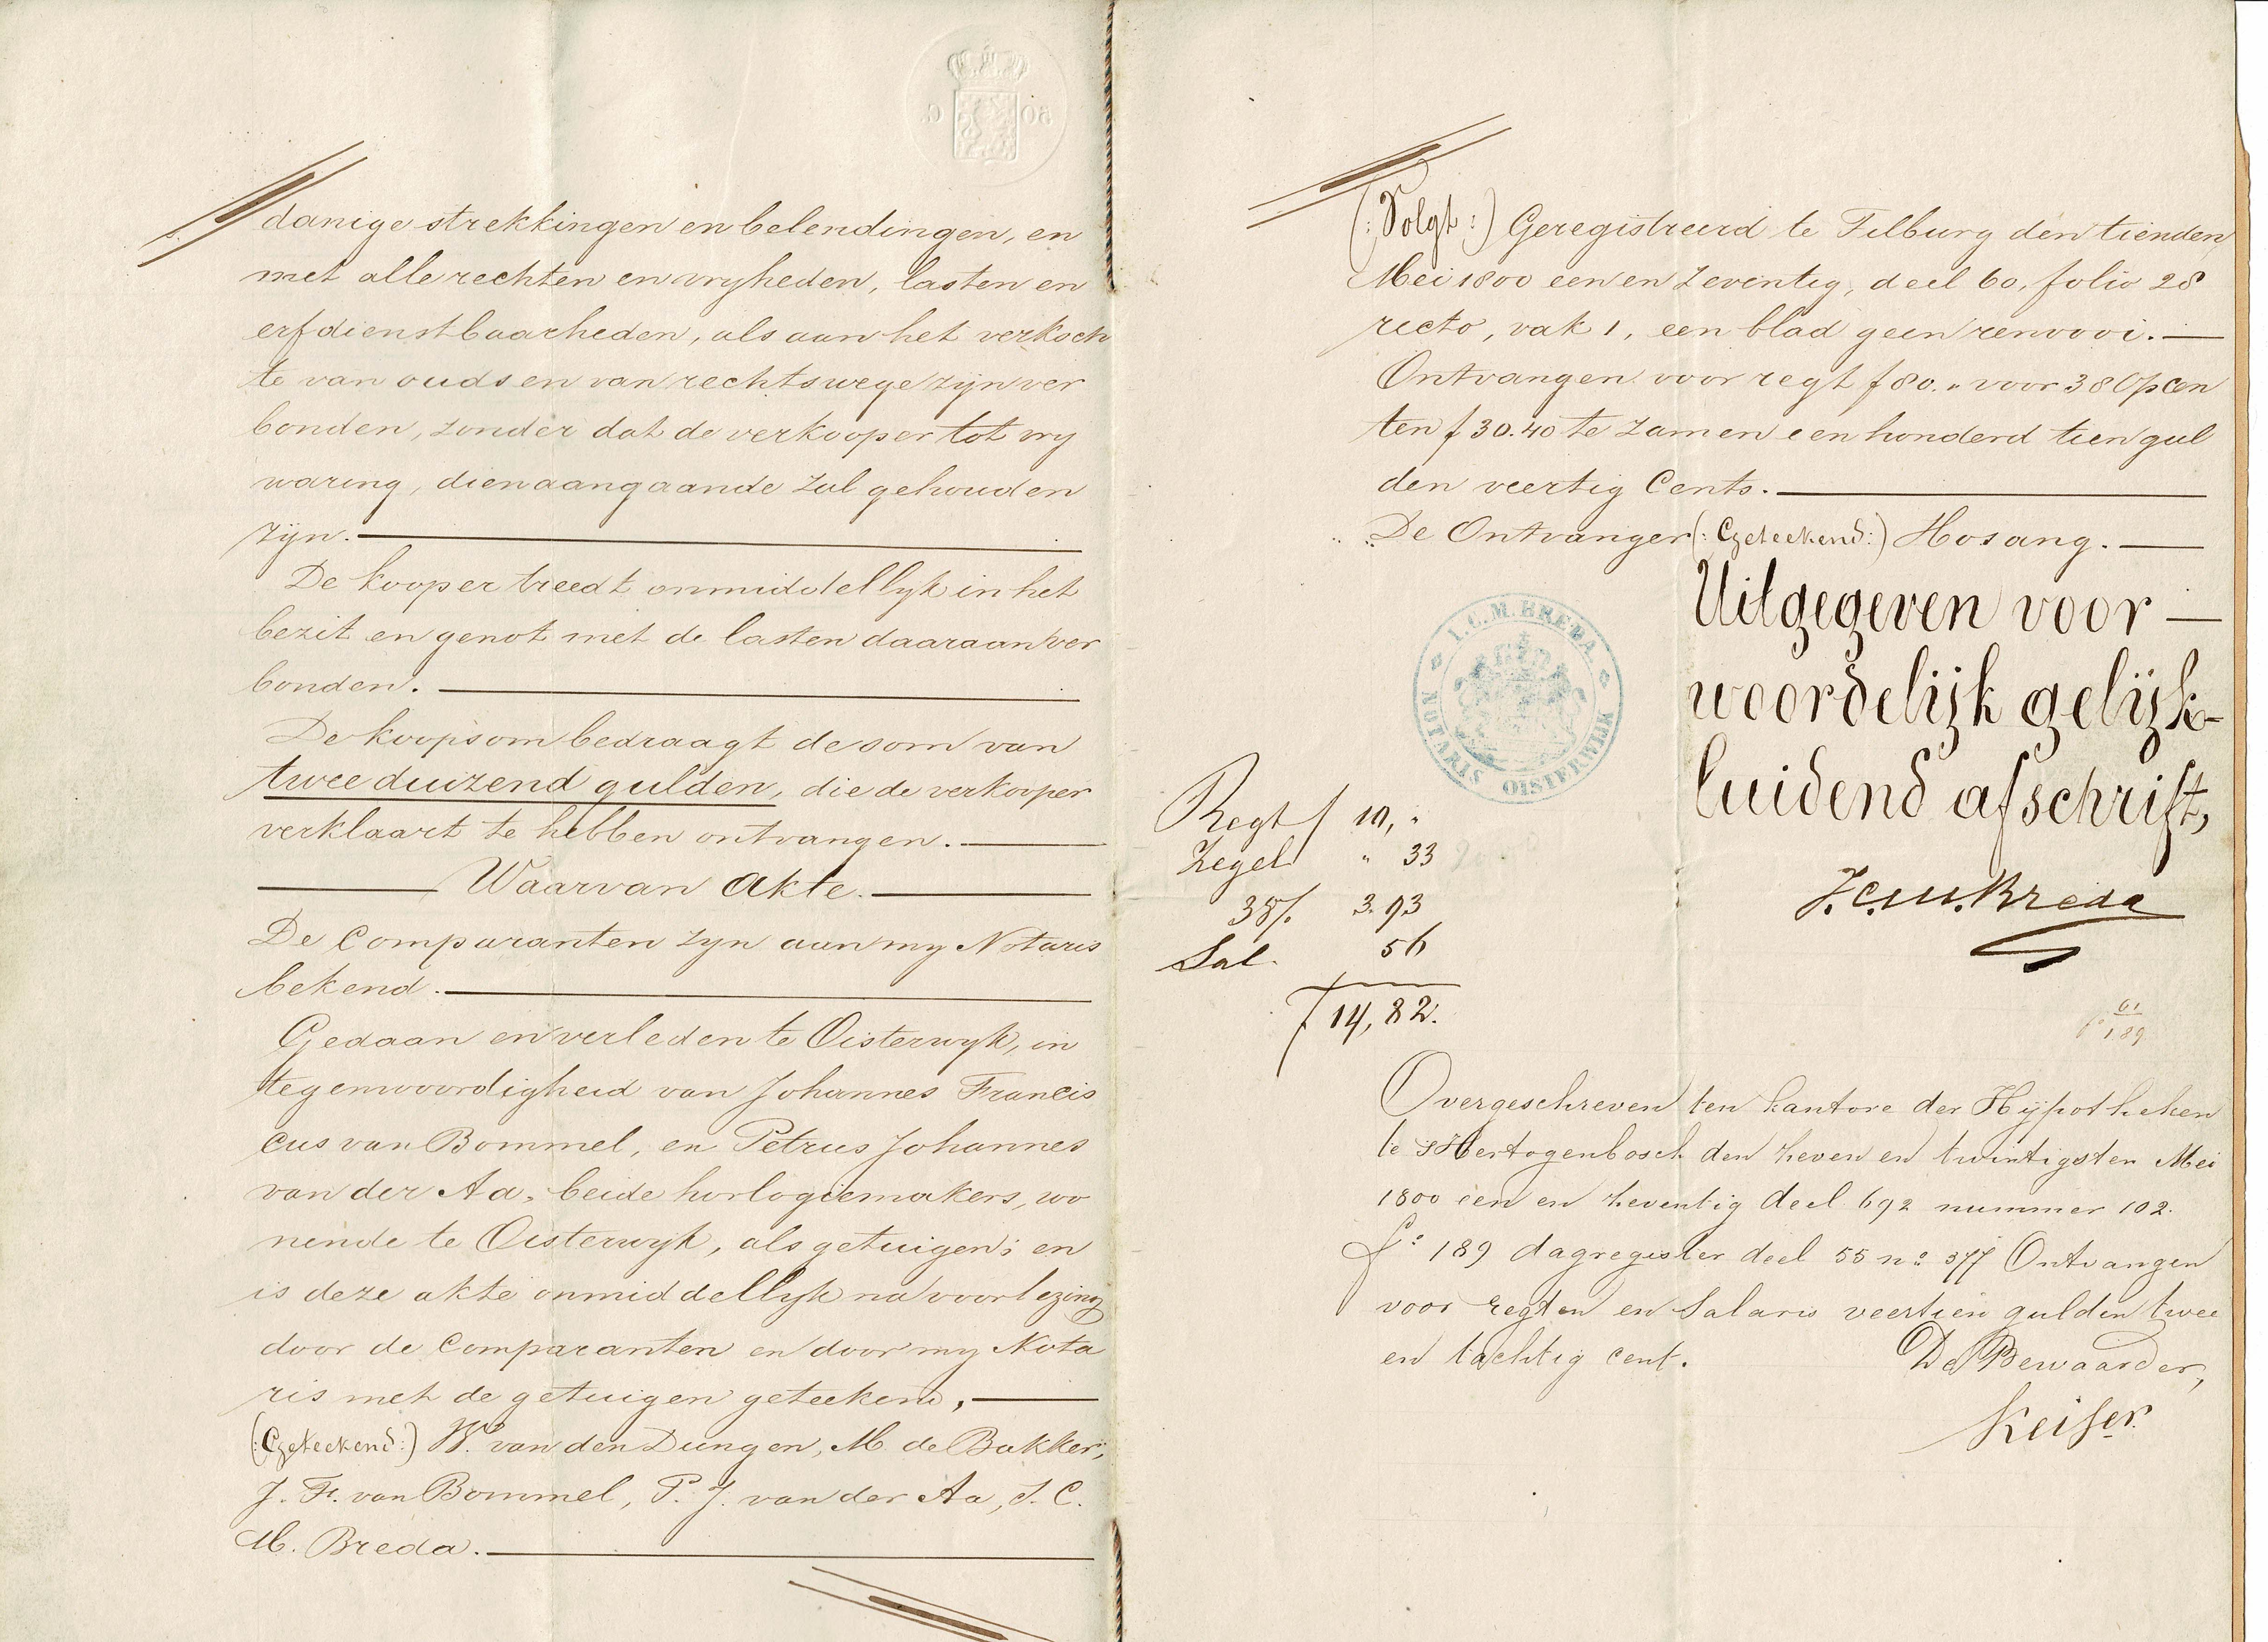 danige strekkingen en belendingen, en
met alle rechten en vryheden, lasten en
erfdienstbaarheden, als aan het verkoch
te van ouds en van rechtswege zijn ver
bonden, zonder dat de verkooper tot vry
waring, dienaangaande zal gehouden
zijn.
De kooper treedt onmiddellyk in het
bezit en genot met de lasten daaraan ver
bonden.
De koopsom bedraagt de som van
twee duizend gulden, die de verkooper
verklaart te hebben ontvangen.
Waarvan Akte.
De Comparanten zyn aan my Notaris
bekend.
Gedaan en verleden te Oisterwyk, in
tegenwoordigheid van Johannes Francis
cus van Bommel, en Petrus Johannes
van der Aa, beide horlogiemakers, wo
nende te Oisterwyk, als getuigen; en
is deze akte onmiddellyk na voorlezing
door de Comparanten en door my Nota
ris met de getuigen geteekend,
(:Geteekend:) W. van den Dungen, M. de Bakker,
J. Fr. van Bommel, P. J. van der Aa, J. C.
M. Breda.
C. 50
(:Volgt:) Geregistreerd te Tilburg den tienden
Mei 1800 een en zeventig, deel 60, folio 28
recto, vak 1, een blad geen renvooi.
Ontvangen voor regt f 80. „ voor 38 Opcen
ten f 30.40 te zamen een honderd tien gul
den veertig Cents.
De Ontvanger (:Geteekend:) Hosang.
Uitgegeven voor
woordelijk gelijk-
luidend afschrift,
J.C.M. Breda
I.C.M. BREDA.
NOTARIS OISTERWIJK
Regt f 10, „
Zegel „ 33
38% 3.93
Sal. 56
f 14,82.
61
f° 189
Overgeschreven ten kantore der Hypotheken
te s'Hertogenbosch den zeven en twintigsten Mei
1800 een en zeventig deel 692 nummer 102.
f° 189 dagregister deel 55 n° 377 Ontvangen
voor regten en Salaris veertien gulden twee
en tachtig cent. De Bewaarder,
Keiser